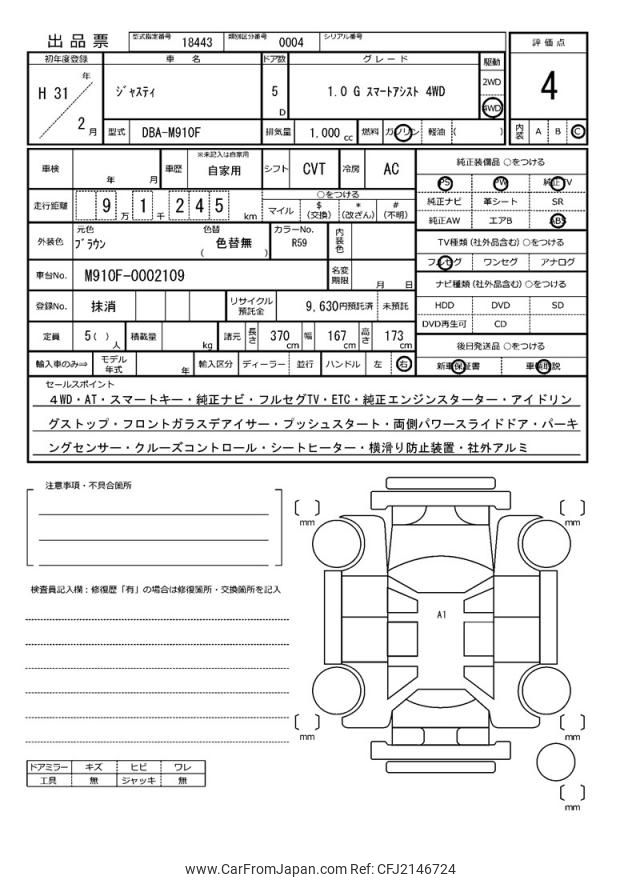 出品票 型式指定番号 18443 類別区分番号 0004 シリアル番号
評価点
4
内装 A B C
初年度登録 車名 ドア数 グレード 駆動
H 31 年 2 月
ジャスティ 5 D 1.0 G スマートアシスト 4WD
2WD
4WD
型式 DBA-M910F 排気量 1,000 cc 燃料 ガソリン 軽油 ( )
車検 年 月 車歴 ※未記入は自家用 自家用 シフト CVT 冷房 AC
走行距離 9 万 1 千 2 4 5 km
○をつける
マイル $ (交換) * (改ざん) # (不明)
外装色 元色 ブラウン 色替 ( 色替無 ) カラーNo. R59 内装色
車台No. M910F-0002109 名変期限 月 日
登録No. 抹消 リサイクル預託金 9,630円預託済 未預託
定員 5( ) 人 積載量 kg 諸元 長さ 370 cm 幅 167 cm 高さ 173 cm
輸入車のみ⇒ モデル年式 年 輸入区分 ディーラー 並行 ハンドル 左 右
純正装備品 ○をつける
PS PW 純正TV
純正ナビ 革シート SR
純正AW エアB ABS
TV種類 (社外品含む) ○をつける
フルセグ ワンセグ アナログ
ナビ種類 (社外品含む) ○をつける
HDD DVD SD
DVD再生可 CD
後日発送品 ○をつける
新車保証書 車輌取説
セールスポイント
4WD・AT・スマートキー・純正ナビ・フルセグTV・ETC・純正エンジンスターター・アイドリン
グストップ・フロントガラスデアイサー・プッシュスタート・両側パワースライドドア・パーキ
ングセンサー・クルーズコントロール・シートヒーター・横滑り防止装置・社外アルミ
注意事項・不具合箇所
検査員記入欄：修復歴「有」の場合は修復箇所・交換箇所を記入
ドアミラー キズ ヒビ ワレ
工具 無 ジャッキ 無
[ ] mm
[ ] mm
A1
[ ] mm
[ ] mm
[ ] mm
www.CarFromJapan.com Ref: CFJ2146724